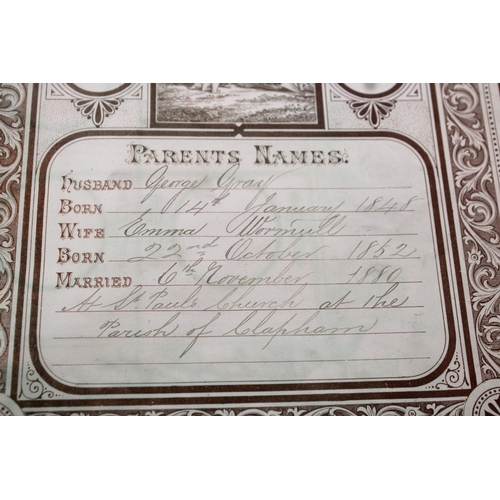 PARENTS NAMES.
HUSBAND George Gray
BORN 14th January 1848
WIFE Emma Wormull
BORN 22nd October 1852
MARRIED 6th November 1880
At St Pauls Church at the
Parish of Clapham